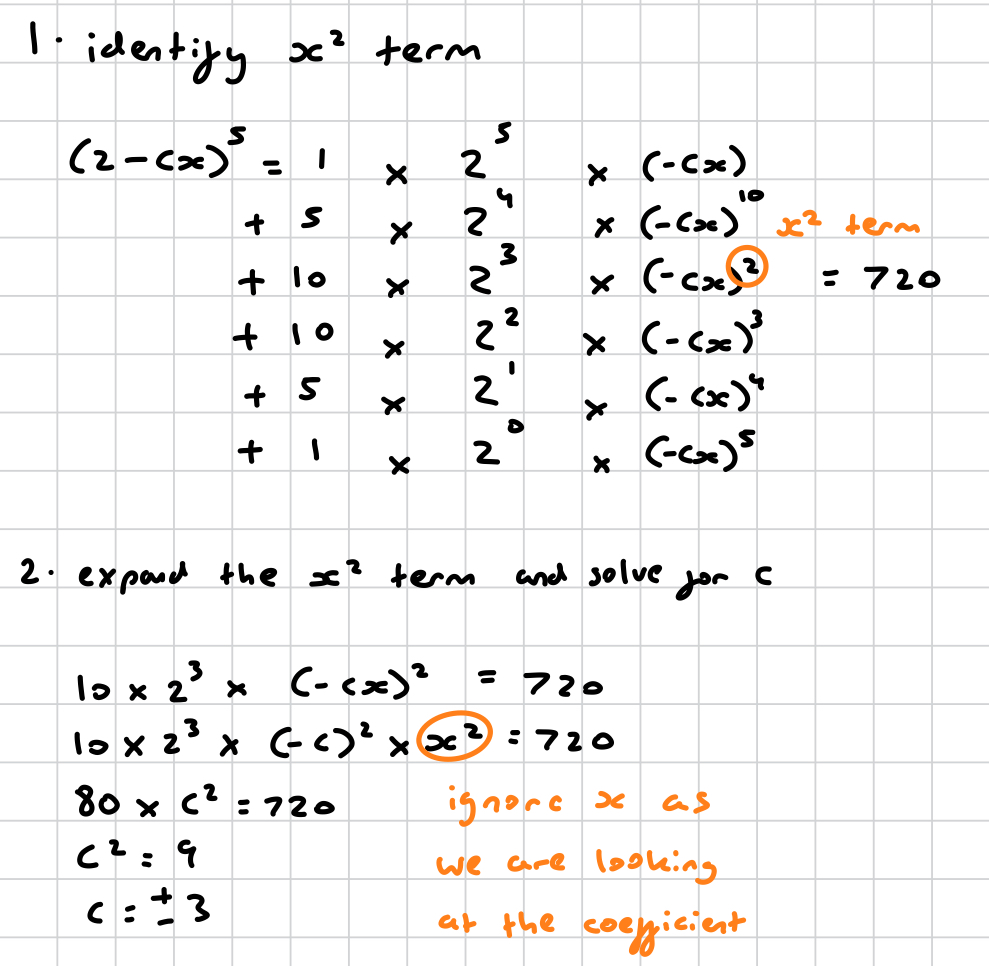 1. identify x² term
(2-cx)⁵ = 1 × 2⁵ × (-cx)
+ 5 × 2⁴ × (-cx)¹⁰ x² term
+ 10 × 2³ × (-cx)² = 720
+ 10 × 2² × (-cx)³
+ 5 × 2¹ × (-cx)⁴
+ 1 × 2⁰ × (-cx)⁵
2. expand the x² term and solve for c
10 × 2³ × (-cx)² = 720
10 × 2³ × (-c)² × x² = 720
80 × c² = 720 ignore x as
c² = 9 we are looking
c = ± 3 at the coefficient